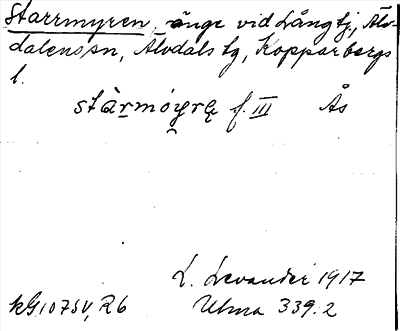 Starrmyren, änge vid Långtj., Älv-
dalens sn, Älvdals tg, Kopparbergs
l.
stàrmóyrę f. III Ås
L. Levander 1917
kG1075V, R6 Ulma 339:2